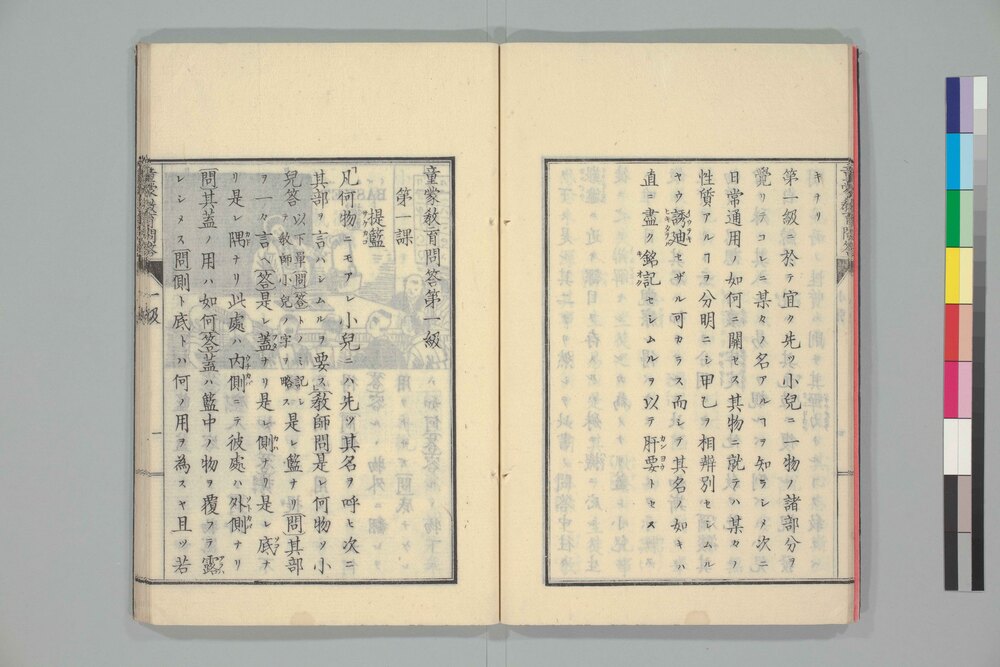 キヲリ
第一級ニ於テ宜ク先ツ小兒ニ一物ノ諸部分ヲ
覺リテコレニ某々ノ名アルヿヲ知ラシメ次ニ
日常通用ノ如何ニ關セス其物ニ就テハ某々ノ
性質アルヿヲ分明ニシ甲乙ヲ相辨別セシムル
ヤウ誘廸セザル可カラス而シテ其名ノ如キハ
直ニ盡ク銘記セシムルヲ以テ肝要トセス
童蒙敎育問答第一級
第一課
提籃
凡何物ニモアレ小兒ニハ先ツ其名ヲ呼ヒ次ニ
其部ヲ言ハシムルヲ要ス敎師問是レ何物ソ小
兒答以下單問答トノミ記シテ敎師小兒ノ字ヲ略ス是レ籃ナリ問其部
ヲ一々言へ答是レ蓋ナリ是レ側ナリ是レ底ナ
リ是レ隅ナリ此處ハ内側ニテ彼處ハ外側ナリ
問其蓋ノ用ハ如何答蓋ハ籃中ノ物ヲ覆フテ露
レシメス問側ト底トハ何ノ用ヲ為スヤ且ツ若
一級
一